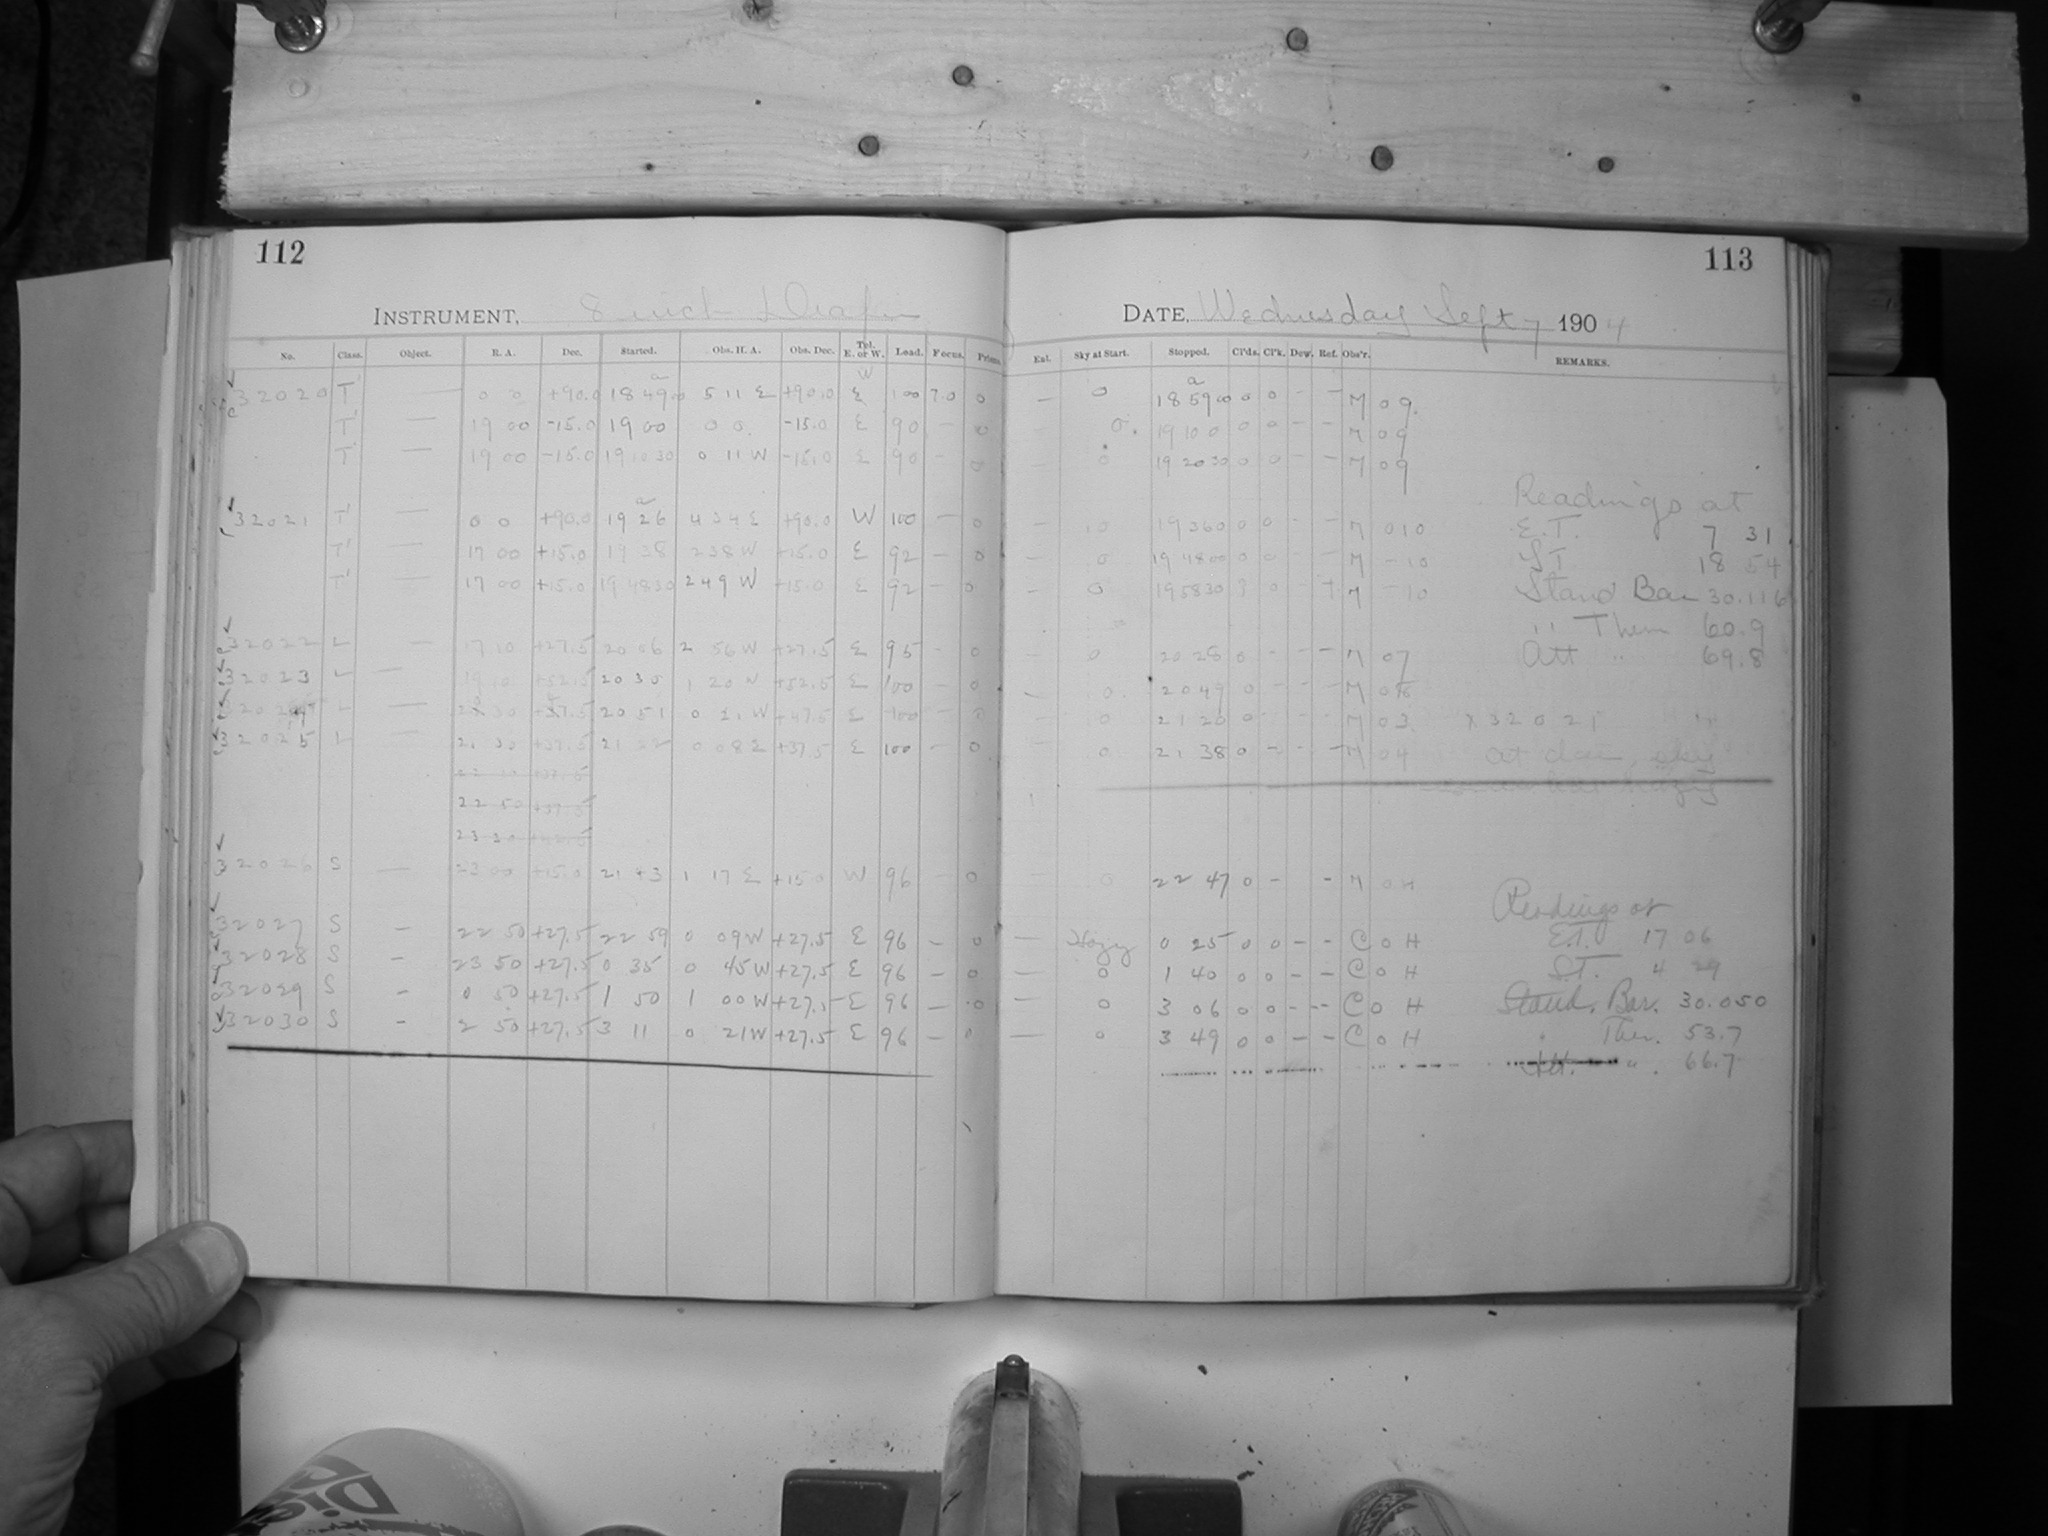 112
INSTRUMENT, 8 inch Draper
No. Class. Object. R. A. Dec. Started. Obs. H. A. Obs. Dec. Tel. E. or W. Load. Focus. Prisms.
32020 T' — 0 0 +90.0 18 49 00 5 11 E +90.0 E W 100 7.0 0
T' — 19 00 -15.0 19 00 0 0 -15.0 E 90 - 0
T' — 19 00 -15.0 19 10 30 0 11 W -15.0 E 90 - 0
32021 T' — 0 0 +90.0 19 26 4 34 E +90.0 W 100 - 0
T' — 17 00 +15.0 19 38 2 38 W +15.0 E 92 - 0
T' — 17 00 +15.0 19 48 30 2 49 W +15.0 E 92 - 0
32022 L — 17 10 +27.5 20 06 2 56 W +27.5 E 95 - 0
32023 L — 19 10 +52.5 20 30 1 20 W +52.5 E 100 - 0
L — 20 51 0 21 W +47.5 E 100 - 0
32025 L — 21 30 +37.5 21 22 0 08 E +37.5 E 100 - 0
22 50 +37.5
23 30
32026 S — 23 00 +15.0 21 43 1 17 E +15.0 W 96 - 0
32027 S - 22 50 +27.5 22 59 0 09 W +27.5 E 96 - 0
32028 S - 23 50 +27.5 0 35 0 45 W +27.5 E 96 - 0
32029 S - 0 50 +27.5 1 50 1 00 W +27.5 E 96 - 0
32030 S - 2 50 +27.5 3 11 0 21 W +27.5 E 96 - 0
113
DATE, Wednesday Sept 7 1904
Ext. Sky at Start. Stopped. Cl'ds. Cl'k. Dew. Ref. Obs'r. REMARKS.
— 0 18 59 00 0 0 - - M 0 9
0 19 10 0 0 0 - - M 0 9
— 0 19 20 30 0 0 - - M 0 9
Readings at
— 0 19 36 0 0 0 - - M 0 10 E.T. 7 31
— 0 19 48 00 0 0 - - M - 10 S.T. 18 54
— 0 19 58 30 0 - M - 10 Stand Bar 30.116
" Ther 60.9
— 0 20 28 0 - - - M 0 7 Att " 69.8
0 20 49 0 - - - M 0
— 0 21 20 0 - - - M 0 3 x 32021
0 21 38 0 - - - M 0 4 sky
0 22 47 0 - - M 0 H
Readings at
— Hazy 0 25 0 0 - - C 0 H E.T. 17 06
— 0 1 40 0 0 - - C 0 H S.T. 4 29
— 0 3 06 0 0 - - C 0 H Stand. Bar. 30.050
— 0 3 49 0 0 - - C 0 H " Ther. 53.7
Att. " 66.7